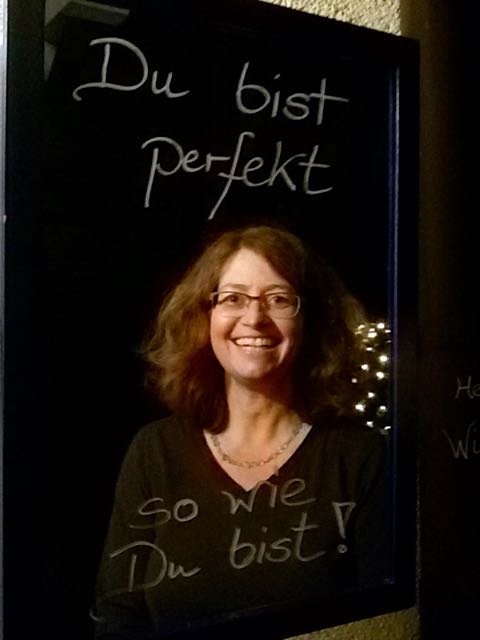 Du bist
perfekt
so wie
Du bist!